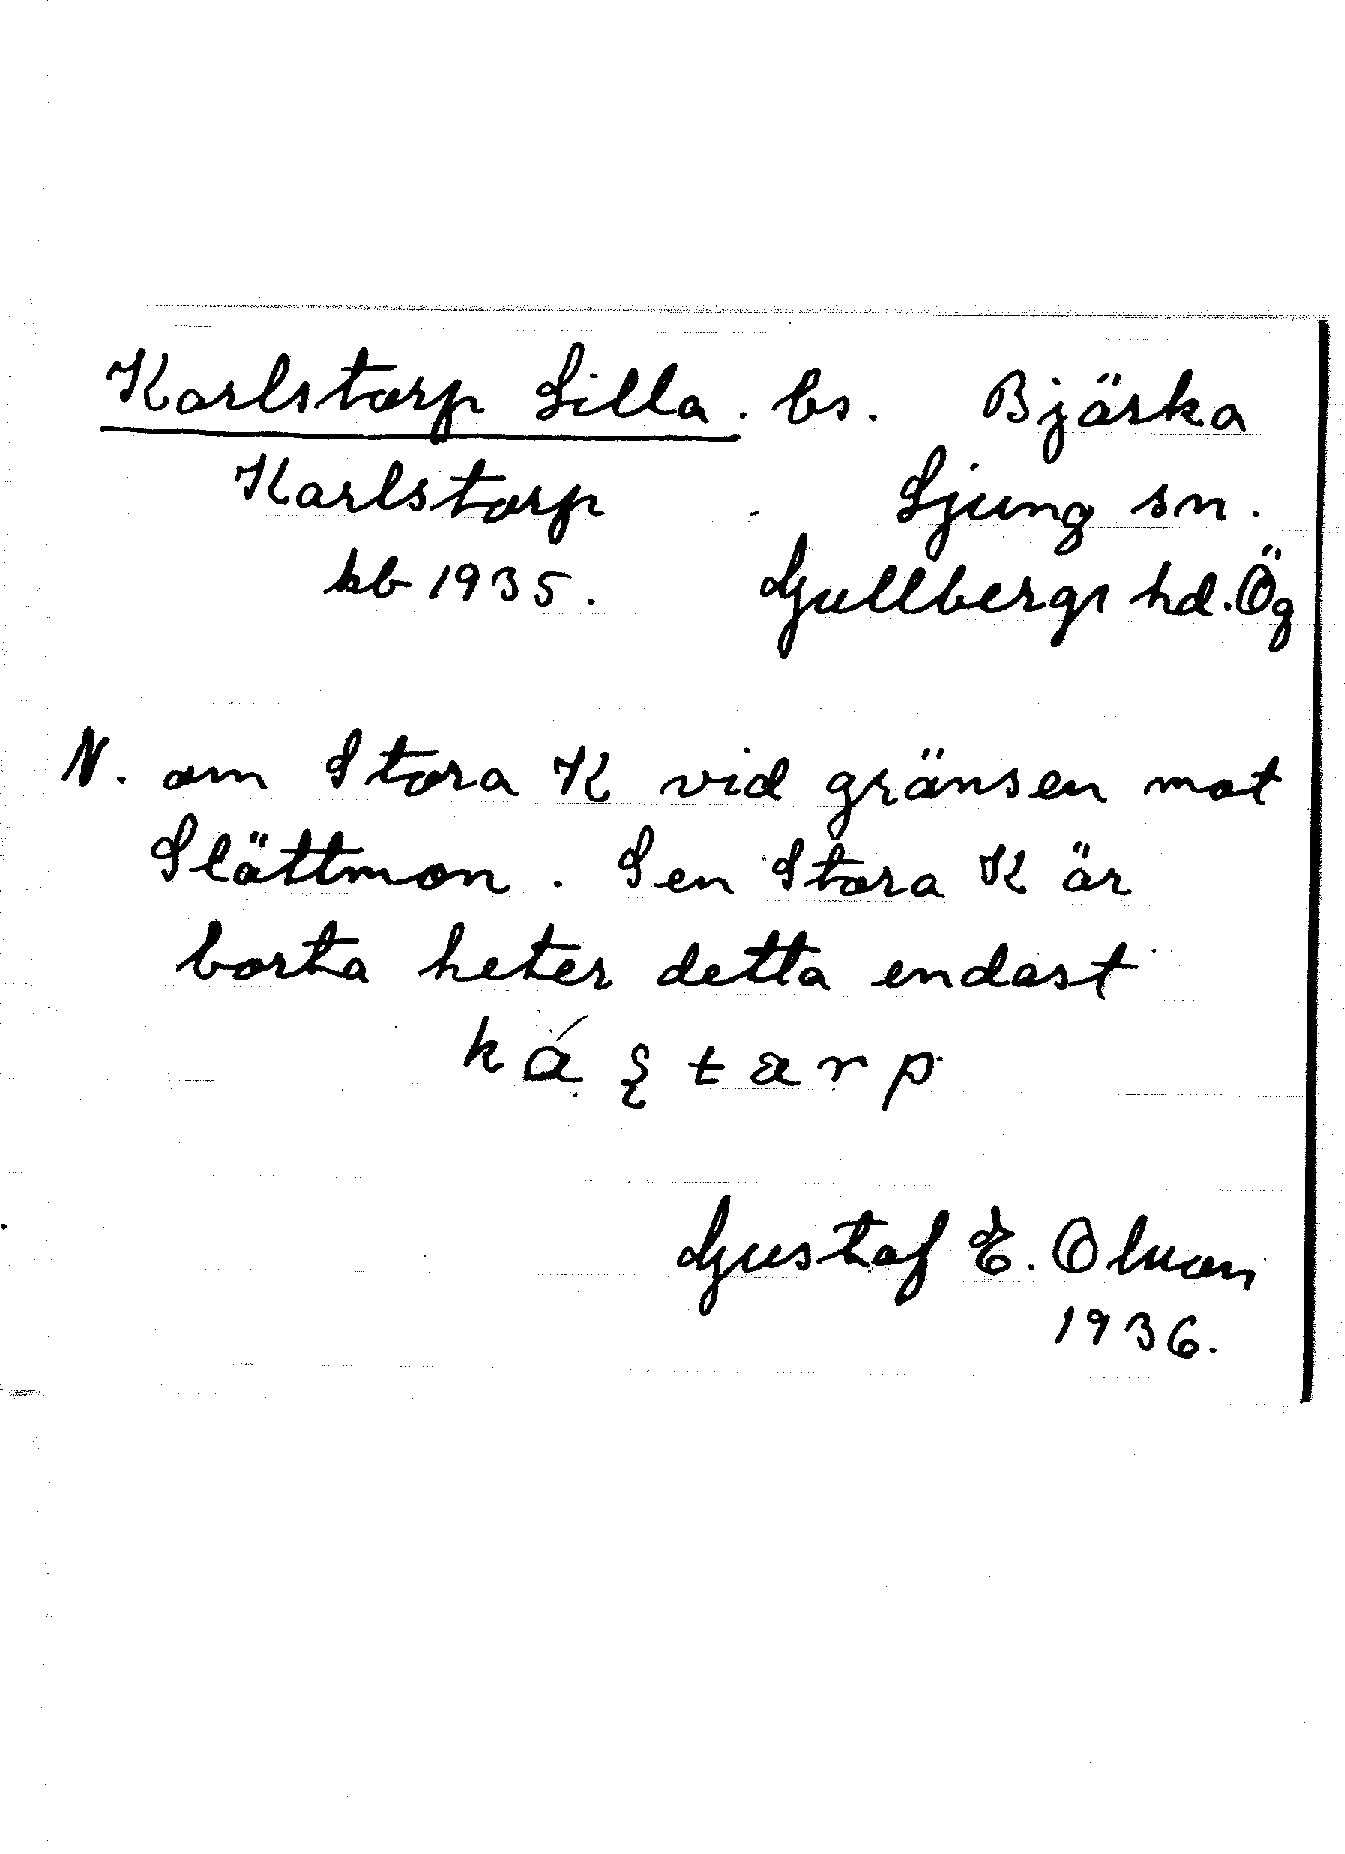 Karlstorp Lilla. bs. Bjärka
Karlstorp Ljung sn.
kb 1935. Gullbergs hd. Ög
N. om Stora K vid gränsen mot
Slättmon. Sen Stora K är
borta heter detta endast
Gustaf E. Olsson
1936.